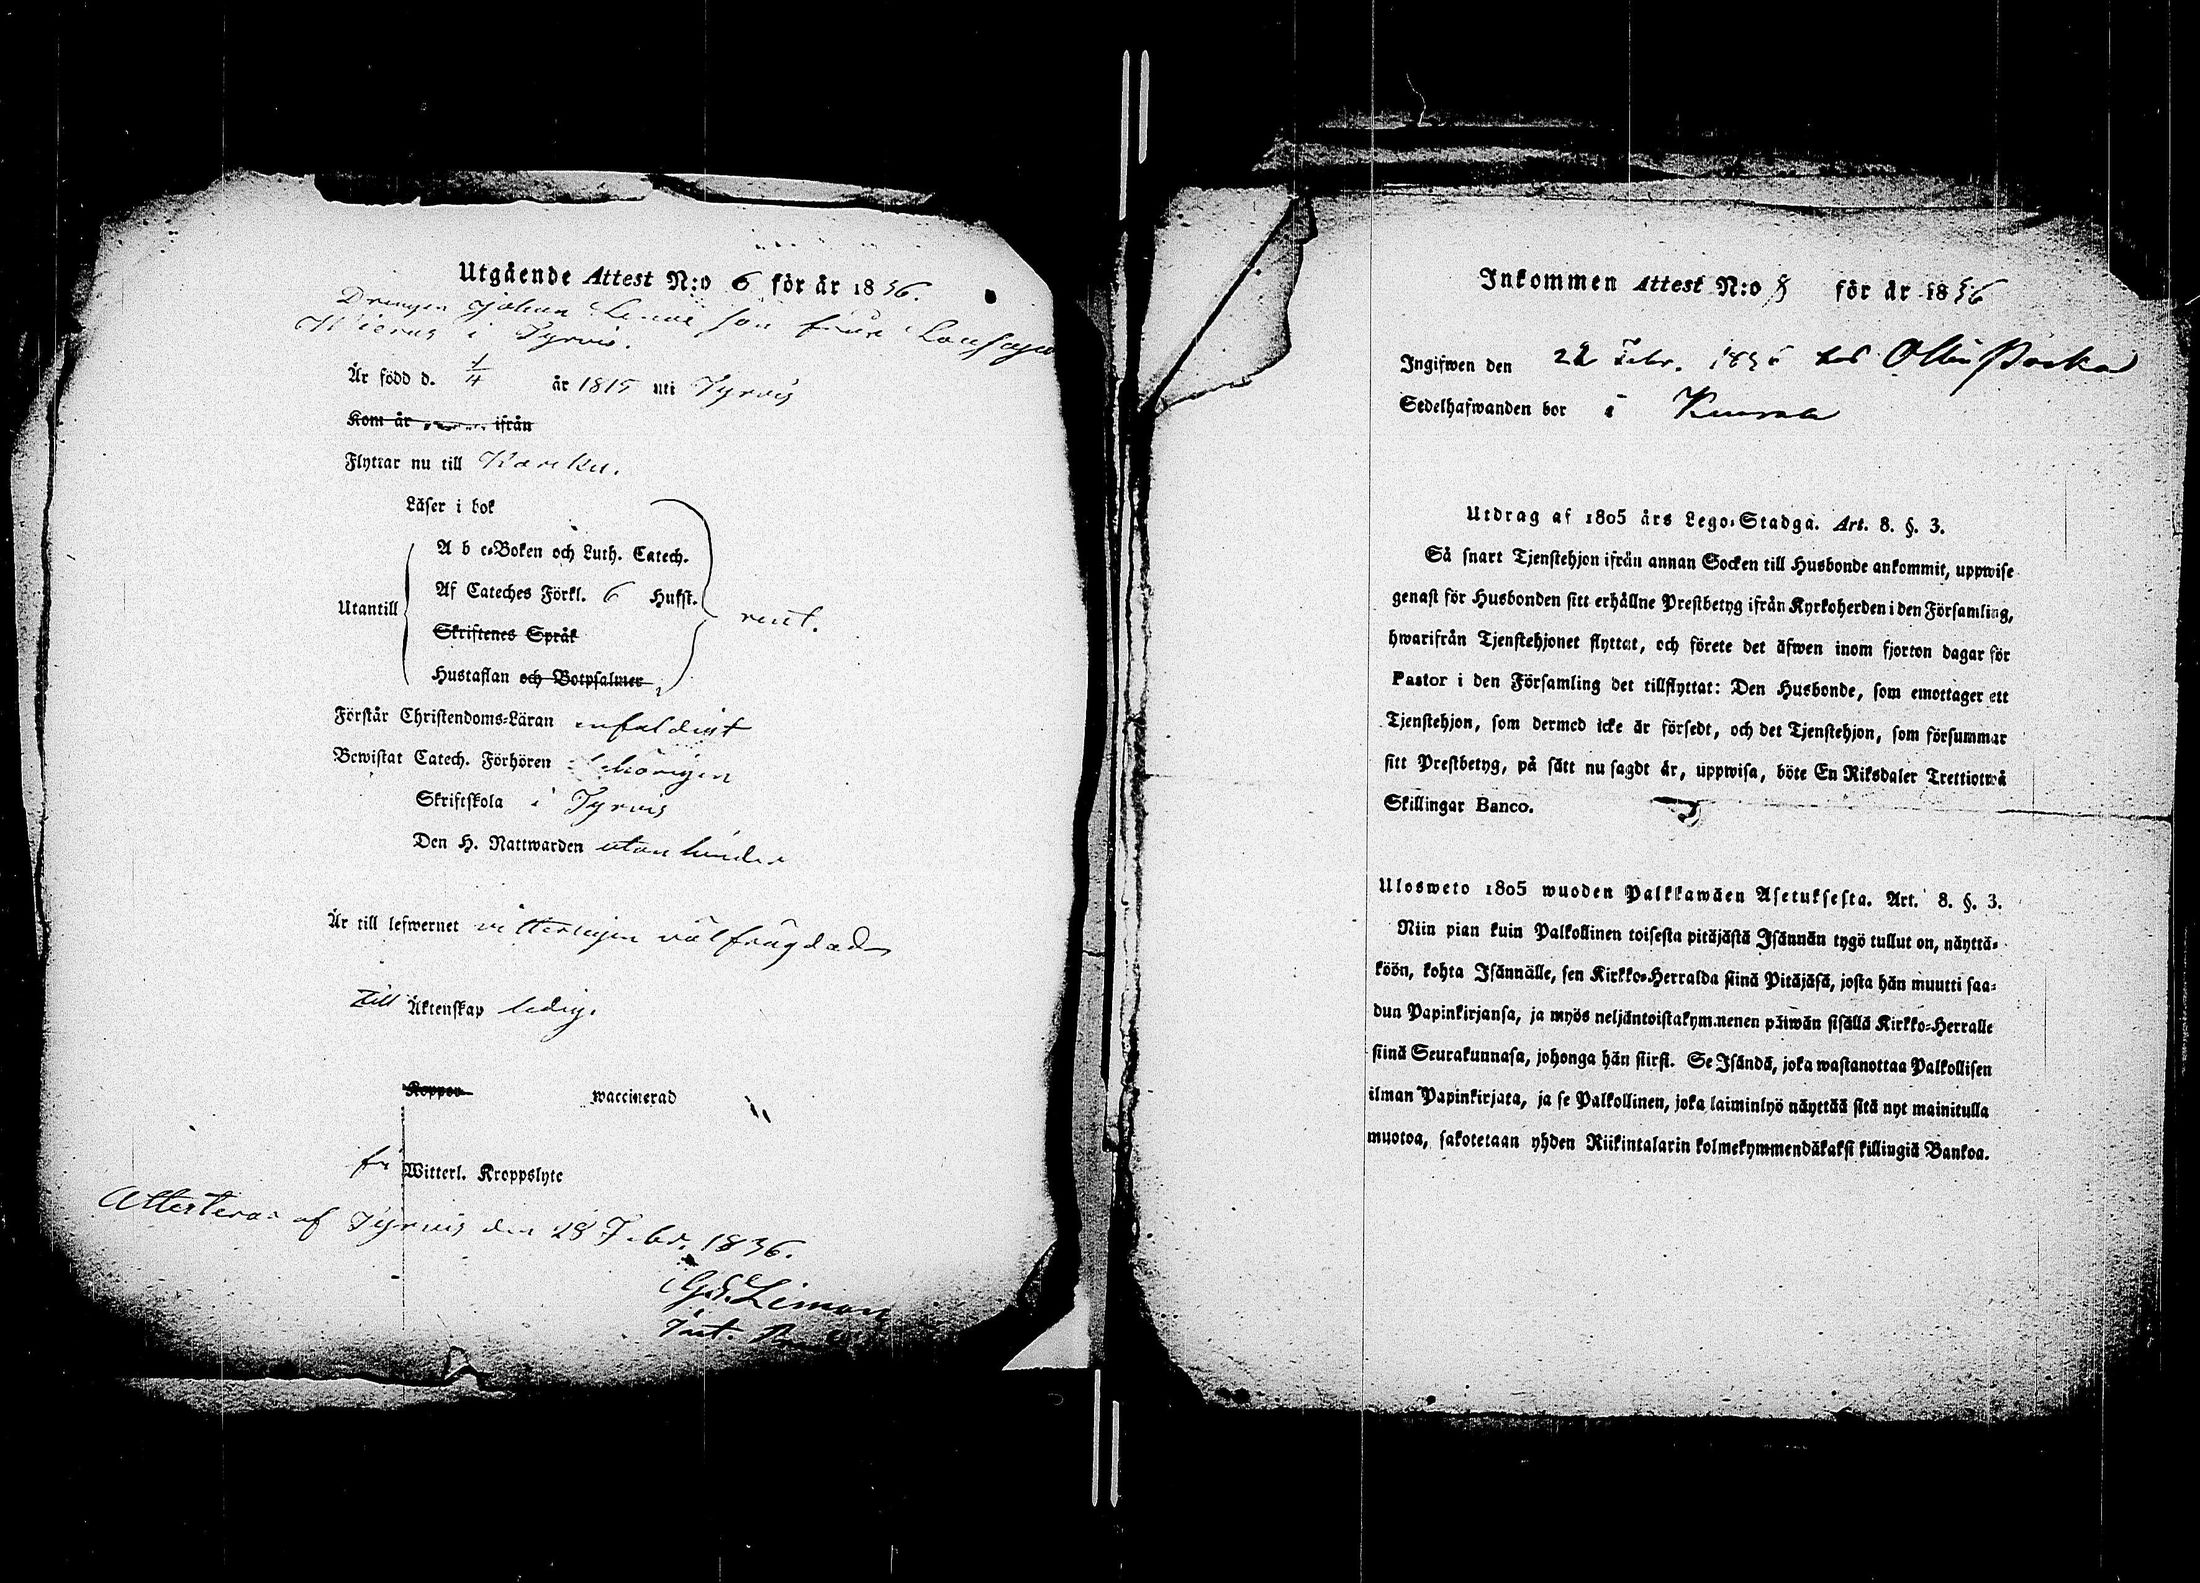 Utgående Attest N:o 6 för år 1836.
Drengen Johan son från
i Tyrvis.
Är född d. 1/4 år 1815 uti Tyrvis
Kom år ifrån
Flyttar nu till Karkku.
Läser i bok
A b c-Boken och Luth. Catech.
Af Cateches Förkl. 6 Hufst.
Utantill rent.
Skriftenes Språk
Hustaflan och Botpsalmer
Förstår Christendoms-Läran enfaldigt
Bewistat Catech. Förhören behörigen
Skriftskola i Tyrvis
Den H. Nattwarden utan hinder
Är till lefwernet vitterligen välfrägdad
till Äktenskap ledig.
Koppor waccinerad
fri Witterl. Kroppslyte
Attesteras af Tyrvis den 28 Febr. 1836.
Liman
Inkommen Attest N:o 8 för år 1836
Ingifwen den 22 Febr. 1836 hos
Sedelhafwanden bor i
Utdrag af 1805 års Lego-Stadga. Art. 8. §. 3.
Så snart Tjenstehjon ifrån annan Socken till Husbonde ankommit, uppwise
genast för Husbonden sitt erhållne Prestbetyg ifrån Kyrkoherden i den Församling,
hwarifrån Tjenstehjonet flyttat, och förete det äfwen inom fjorton dagar för
Pastor i den Församling det tillflyttat: Den Husbonde, som emottager ett
Tjenstehjon, som dermed icke är försedt, och det Tjenstehjon, som försummar
sitt Prestbetyg, på sätt nu sagdt är, uppwisa, böte En Riksdaler Trettiotwå
Skillingar Banco.
Ulosweto 1805 wuoden Palkkawäen Asetuksesta. Art. 8. §. 3.
Niin pian kuin Palkollinen toisesta pitäjästä Isännän tygö tullut on, näyttä-
köön, kohta Isännälle, sen Kirkko-Herralda siinä Pitäjäsä, josta hän muutti saa-
dun Papinkirjansa, ja myös neljäntoistakymmenen päiwän sisällä Kirkko-Herralle
siinä Seurakunnasa, johonga hän siirsi. Se Isändä, joka wastanottaa Palkollisen
ilman Papinkirjata, ja se Palkollinen, joka laiminlyö näyttää sitä nyt mainitulla
muotoa, sakotetaan yhden Riikintalarin kolmekymmendäkaksi killingiä Bankoa.